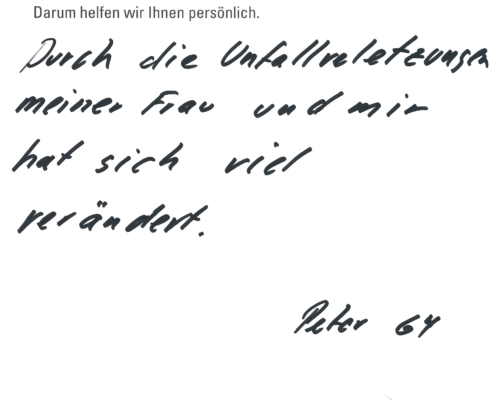 Darum helfen wir Ihnen persönlich.
Durch die Unfallverletzungen
meiner Frau und mir
hat sich viel
verändert.
Peter 64